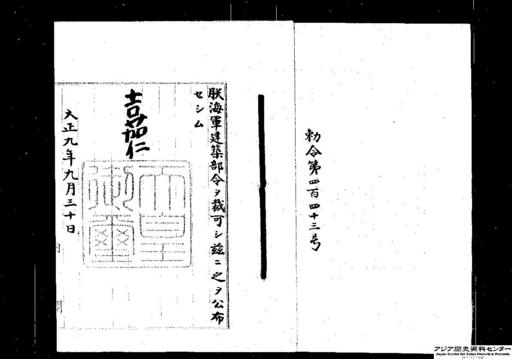 勅令第四百四十三号
朕海軍建築部令ヲ裁可シ茲ニ之ヲ公布
セシム
嘉仁
天皇
御璽
大正九年九月三十日
アジア歴史資料センター
Japan Center for Asian Historical Records